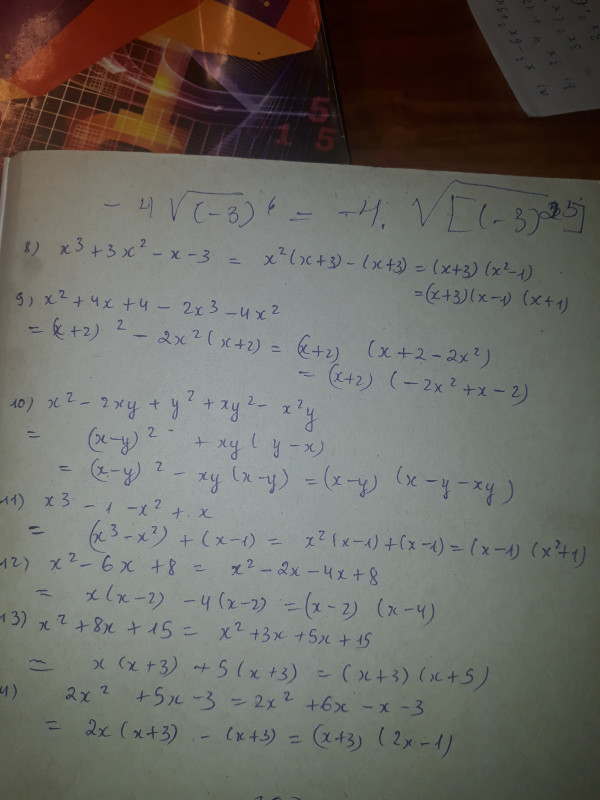 5
1 5
- 4 √(-3)⁶ = -4. √[(-3)
8) x³ + 3x² - x - 3 = x²(x+3) - (x+3) = (x+3) (x²-1)
= (x+3)(x-1) (x+1)
9) x² + 4x + 4 - 2x³ - 4x²
= (x+2)² - 2x²(x+2) = (x+2) (x+2-2x²)
= (x+2) (-2x²+x-2)
10) x² - 2xy + y² + xy² - x²y
= (x-y)² + xy(y-x)
= (x-y)² - xy(x-y) = (x-y) (x-y-xy)
11) x3 - 1 - x² + x
= (x³-x²) + (x-1) = x²(x-1)+(x-1) = (x-1) (x²+1)
12) x² - 6x + 8 = x² - 2x - 4x + 8
= x(x-2) - 4(x-2) = (x-2) (x-4)
13) x² + 8x + 15 = x² + 3x + 5x + 15
= x(x+3) + 5(x+3) = (x+3)(x+5)
4) 2x² + 5x - 3 = 2x² + 6x - x - 3
= 2x(x+3) - (x+3) = (x+3) (2x-1)